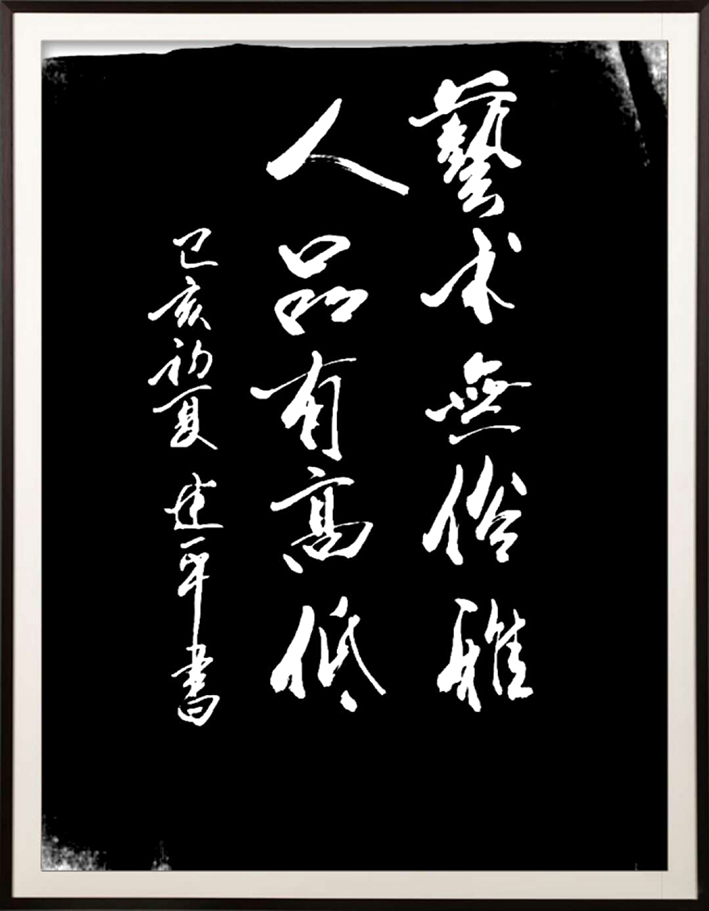 藝术無俗雅
人品有高低
己亥初夏 建平書